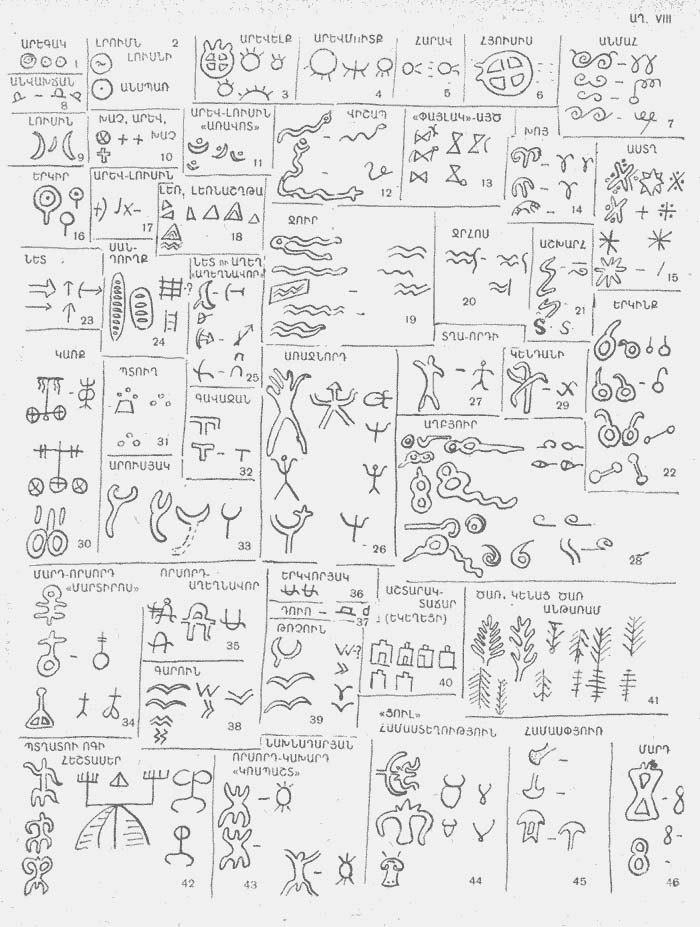 ԱՂ. VIII
ԱՐԵԳԱԿ
1
ԼՐՈՒՄՆ 2
ԼՈՒՍՆԻ
ԱՆՍՊԱՌ
ԱՐԵՎԵԼՔ
3
ԱՐԵՎՄՈՒՏՔ
4
ՀԱՐԱՎ
5
ՀՅՈՒՍԻՍ
6
ԱՆՄԱՀ
7
ԱՆՎԱԽՃԱՆ
8
ԼՈՒՍԻՆ
9
ԽԱՉ, ԱՐԵՎ,
ԽԱՉ
10
ԱՐԵՎ-ԼՈՒՍԻՆ
«ԱՌԱՎՈՏ»
11
ՎԻՇԱՊ
12
«ՓԱՅԼԱԿ»-ԱՅԾ
13
ԽՈՅ
14
ԱՍՏՂ
15
ԵՐԿԻՐ
16
ԱՐԵՎ-ԼՈՒՍԻՆ
17
ԼԵՌ, ԼԵՌՆԱՇՂԹԱ
18
ՋՈՒՐ
19
ՋՐՀՈՍ
20
ԱՇԽԱՐՀ
21
ԵՐԿԻՆՔ
22
ՆԵՏ
23
ՍԱՆ-
ԴՈՒՂՔ
24
ՆԵՏ ՈՒ ԱՂԵՂ
«ԱՂԵՂՆԱՎՈՐ»
25
ԱՌԱՋՆՈՐԴ
26
ՏՂԱ-ՈՐԴԻ
27
ԿԵՆԴԱՆԻ
29
ԱՂԲՅՈՒՐ
28
ԿԱՌՔ
30
ՊՏՈՒՂ
31
ԳԱՎԱԶԱՆ
32
ԱՐՈՒՍՅԱԿ
33
ՄԱՐԴ-ՈՐՍՈՐԴ
«ՄԱՐՏԻՐՈՍ»
34
ՈՐՍՈՐԴ-
ԱՂԵՂՆԱՎՈՐ
35
ԵՐԿՎՈՐՅԱԿ
36
ԴՈՒՌ
37
ԳԱՐՈՒՆ
38
ԹՌՉՈՒՆ
39
ԱՇՏԱՐԱԿ-
ՏԱՃԱՐ
(ԵԿԵՂԵՑԻ)
40
ԾԱՌ, ԿԵՆԱՑ ԾԱՌ
ԱՆԹԱՌԱՄ
41
ՊՏՂԱՏՈՒ ՈԳԻ
ՀԵՇՏԱՍԵՐ
42
ՆԱԽՆԱԴԱՐՅԱՆ
ՈՐՍՈՐԴ-ԿԱԽԱՐԴ
«ԿՈՍՊԱՇՏ»
43
«ՑՈՒԼ»
ՀԱՄԱՍՏԵՂՈՒԹՅՈՒՆ
44
ՀԱՄԱՍՓՅՈՒՌ
45
ՄԱՐԴ
46